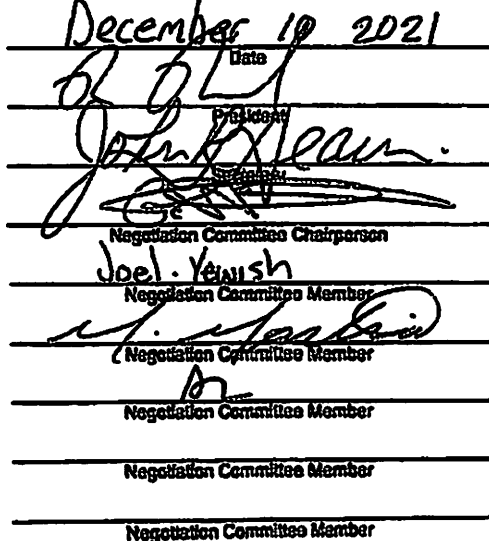 December 10 2021
Date
President
John
Secretary
Negotiation Committee Chairperson
Joel. Yewish
Negotiation Committee Member
M.
Negotiation Committee Member
Negotiation Committee Member
Negotiation Committee Member
Negotiation Committee Member